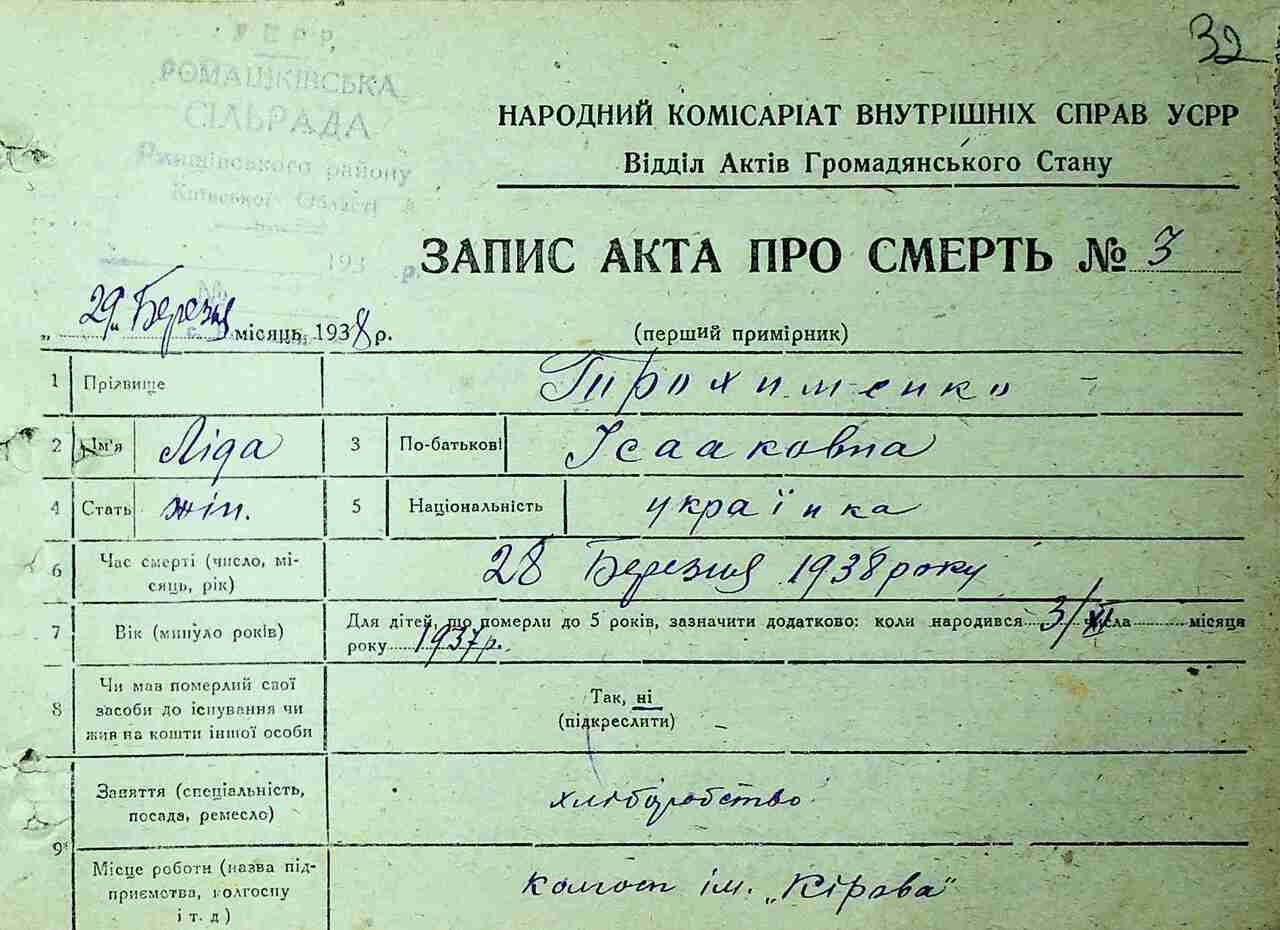 32
УСРР
РОМАШКІВСЬКА
СІЛЬРАДА
Ржищівського району
Київської Області
193 р.
№
НАРОДНИЙ КОМІСАРІАТ ВНУТРІШНІХ СПРАВ УСРР
Відділ Актів Громадянського Стану
ЗАПИС АКТА ПРО СМЕРТЬ № 3
„29“ Березня місяць 1938 р.
(перший примірник)
1 Прізвище Трохименко
2 Ім'я Ліда 3 По-батькові Ісааковна
4 Стать жін. 5 Національність українка
6 Час смерті (число, мі-
сяць, рік) 28 Березня 1938 року
7 Вік (минуло років) Для дітей, що померли до 5 років, зазначити додатково: коли народився 3/XI числа місяця
року 1937 р.
8 Чи мав померлий свої
засоби до існування чи
жив на кошти іншої особи
Так, ні
(підкреслити)
9 Заняття (спеціальність,
посада, ремесло) хліборобство
Місце роботи (назва під-
приємства, колгоспу
і т. д) колгосп ім. „Кірова“